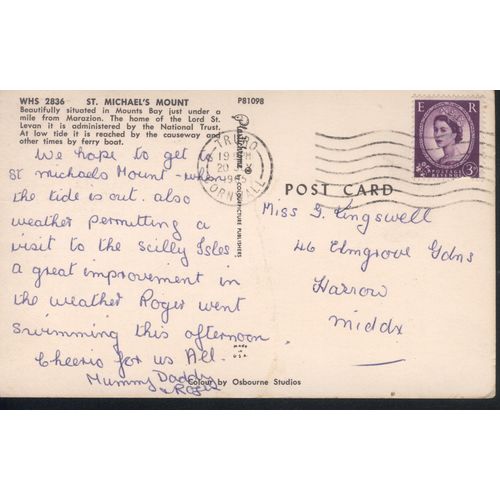 WHS 2836 ST. MICHAEL'S MOUNT
Beautifully situated in Mounts Bay just under a
mile from Marazion. The home of the Lord St.
Levan it is administered by the National Trust.
At low tide it is reached by the causeway and
other times by ferry boat.
We hope to get to
St michaels Mount when
the tide is out. also
weather permitting a
visit to the Scilly Isles
a great improvement in
the weather Roger went
swimming this afternoon
Cheerio for us All.
Mummy Daddy
& Roger
P81098
Plastichrome
COLOURPICTURE PUBLISHERS
MADE IN
U.S.A.
Colour by Osbourne Studios
TRURO
CORNWALL
E R
POSTAGE
REVENUE
3D
POST CARD
Miss G. Kingswell
46 Elmgrove Gdns
Harrow
Middx